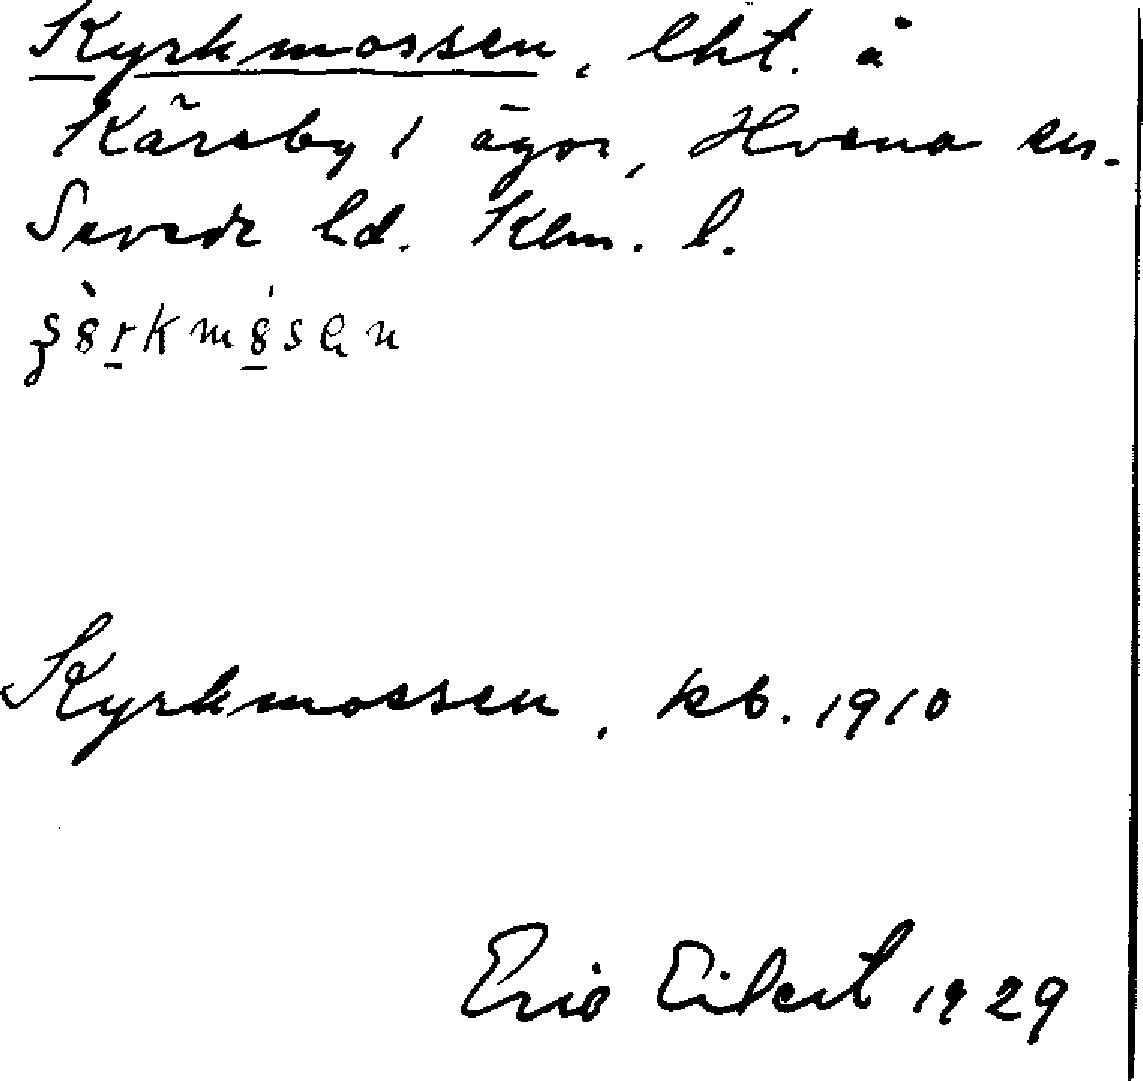 Kyrkmossen, lht. å
Kärsby 1 ägor, Hvena sn.
Sevede hd. Klm. l.
Kyrkmossen, kb. 1910
Eric Eilert 1929